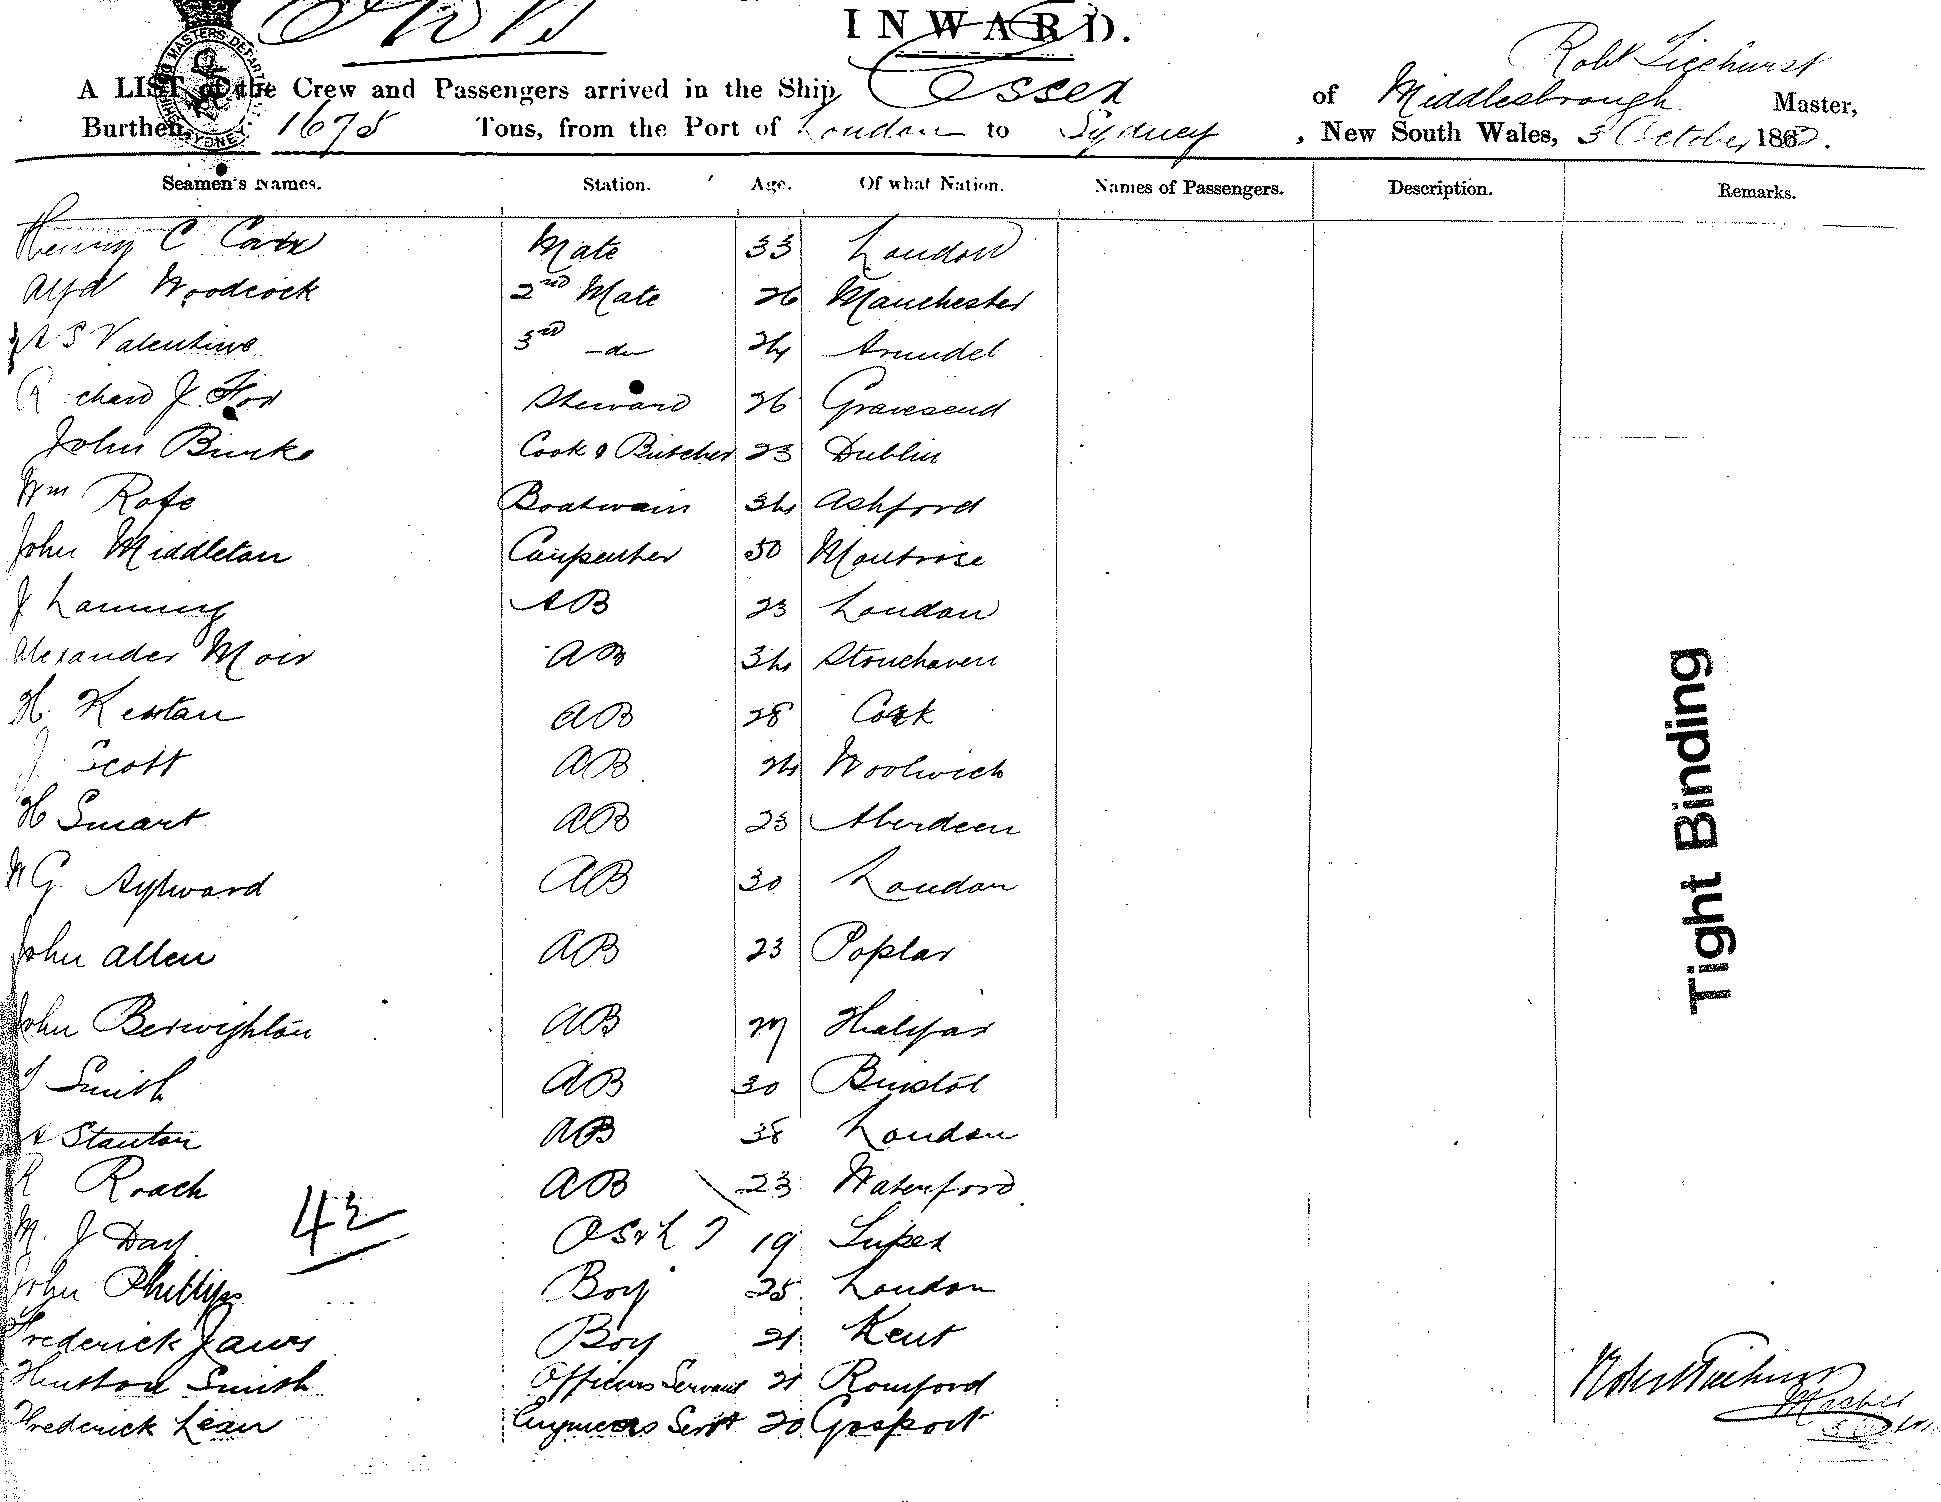 INWARD.
Robt Ticehurst
A LIST of the Crew and Passengers arrived in the Ship Essex of Middlesbrough Master,
Burthen, 1678 Tons, from the Port of London to Sydney, New South Wales, 3 October 188
Seamen's Names. Station. Age. Of what Nation. Names of Passengers. Description. Remarks.
Henry C Mate 33 London
Alfd Woodcock 2nd Mate 26 Manchester
A S Valentine 3rd -do- 24 Arundel
Richard J Fox Steward 26 Gravesend
John Burke Cook & Butcher 23 Dublin
Wm Rofe Boatswain 34 Ashford
John Middleton Carpenter 50 Montrose
J Lanning AB 23 London
Alexander Moir AB 34 Stonehaven
H. AB 28 Cork
J Scott AB 24 Woolwich
H Smart AB 23 Aberdeen
W G Aylward AB 30 London
John Allen AB 23 Poplar
John AB 27 Halifax
Smith AB 30 Bristol
A Stanton AB 38 London
R Roach AB 23 Waterford
42
M. J Day 19
John Phillips Boy 25 London
Frederick Boy 21 Kent
Smith Officers Servant 21 Romford
Frederick Engineers Servt 20 Gosport
Robert Ticehurst
Master
Tight Binding